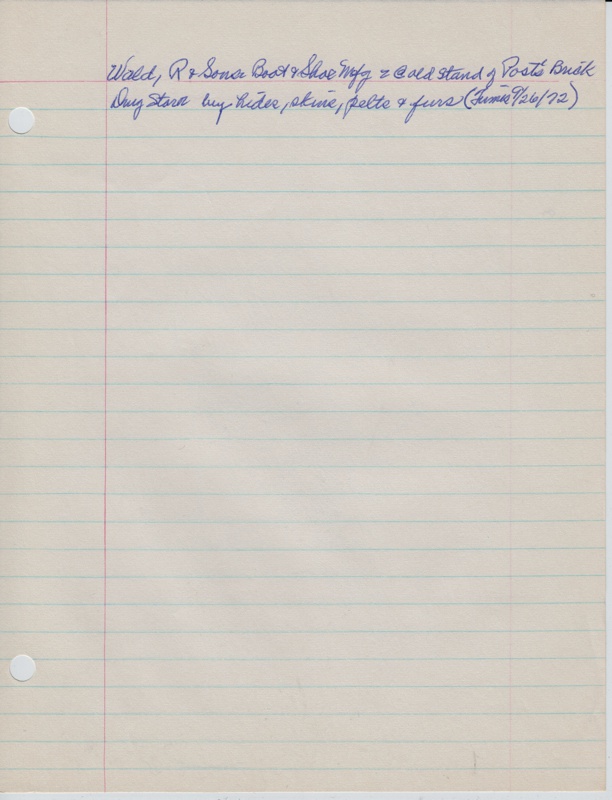 Wald, R & Sons Boot & Shoe Mfg @ old stand of Post's Brick
Drug Store buy hides, skins, pelts & furs (Times 9/26/72)